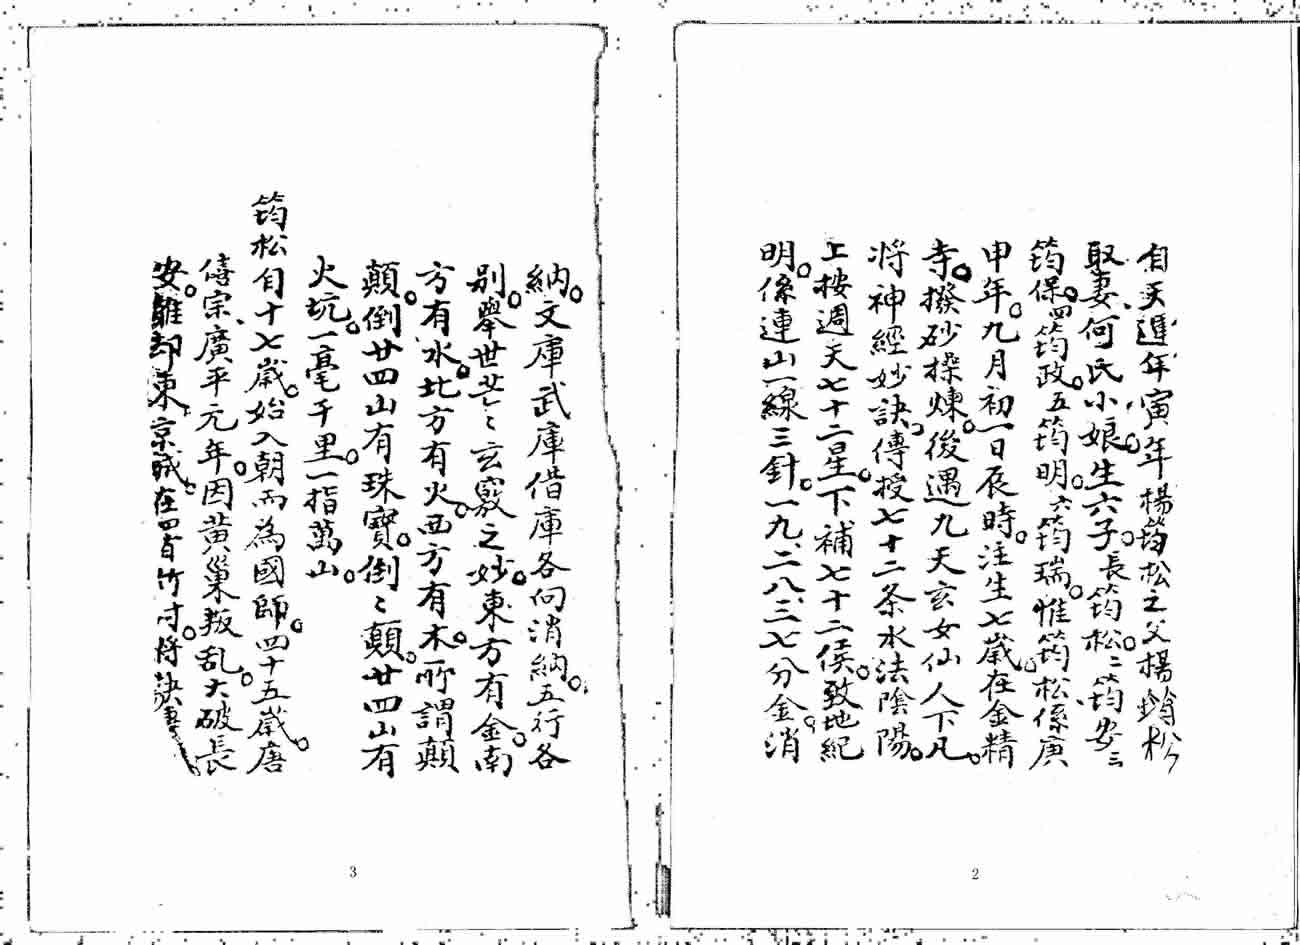 自天運年寅年楊筠松之父楊筠松
娶妻何氏小娘生六子。長筠松。二筠安三
筠保。四筠政。五筠明。六筠瑞。惟筠松係庚
申年。九月初一日辰時。注生七歲在金精
寺。撥砂操煉。後遇九天玄女仙人下凡。
將神經妙訣。傳授七十二条水法陰陽。
上按週天七十二星。下補七十二侯。致地紀
明。係連山一線三針。一九、二八、三七分金。消
2
納。文庫武庫借庫各向消納。五行各
別。舉世茫々玄竅之妙。東方有金。南
方有水。北方有火。西方有木。所謂顛
顛。倒廿四山有珠寶。倒々顛。廿四山有
火坑。一毫千里。一指萬山。
筠松自十七歲。始入朝而為國師。四十五歲。唐
僖宗、廣平元年。因黃巢叛乱。大破長
安。離却東京城。在 竹 。將訣
3